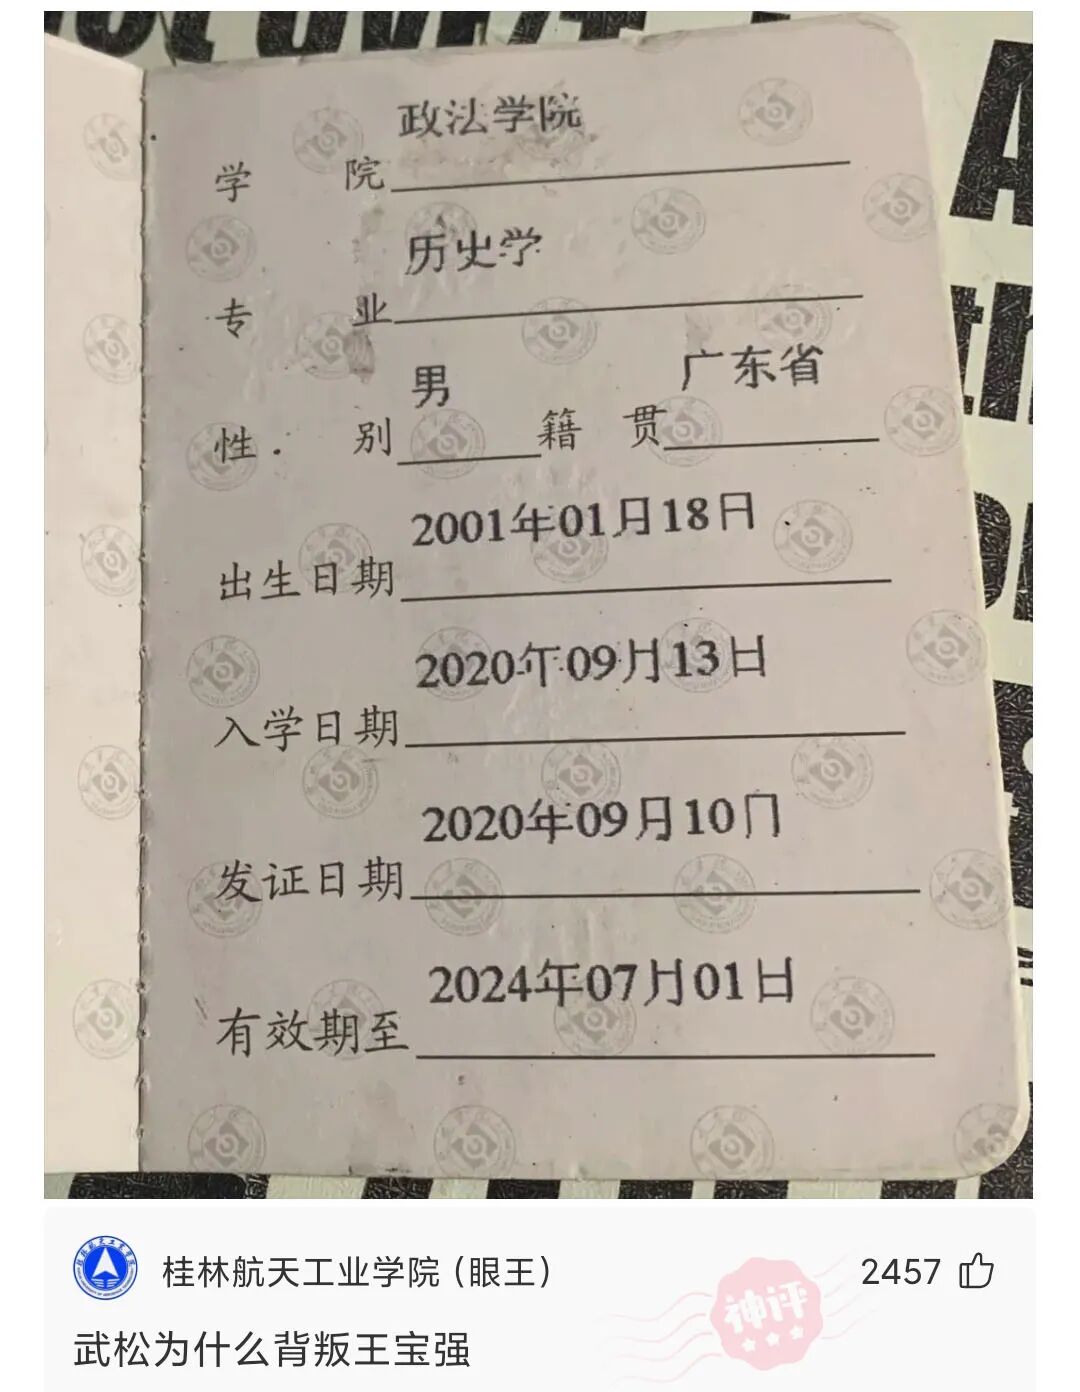 政法学院
学 院
历史学
专 业
男 广东省
性 别 籍 贯
2001年01月18日
出生日期
2020年09月13日
入学日期
2020年09月10日
发证日期
2024年07月01日
有效期至
桂林航天工业学院（眼王） 2457
神评
武松为什么背叛王宝强